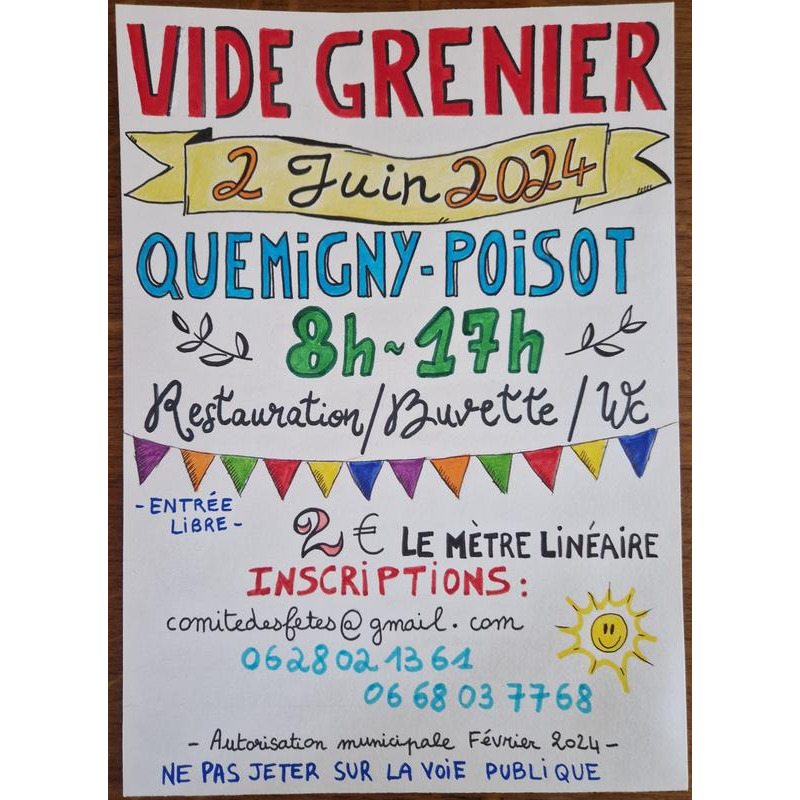 VIDE GRENIER
2 Juin 2024
QUEMiGNY-POiSOT
8h~17h
Restauration/Buvette/Wc
-ENTRÉE
LiBRE-
2€ LE MÈTRE LINÉAIRE
INSCRiPTIONS:
comitedesfetes@gmail.com
06 28 02 13 61
06 68 03 77 68
- Autorisation municipale Février 2024 -
NE PAS JETER SUR LA VOIE PUBLIQUE